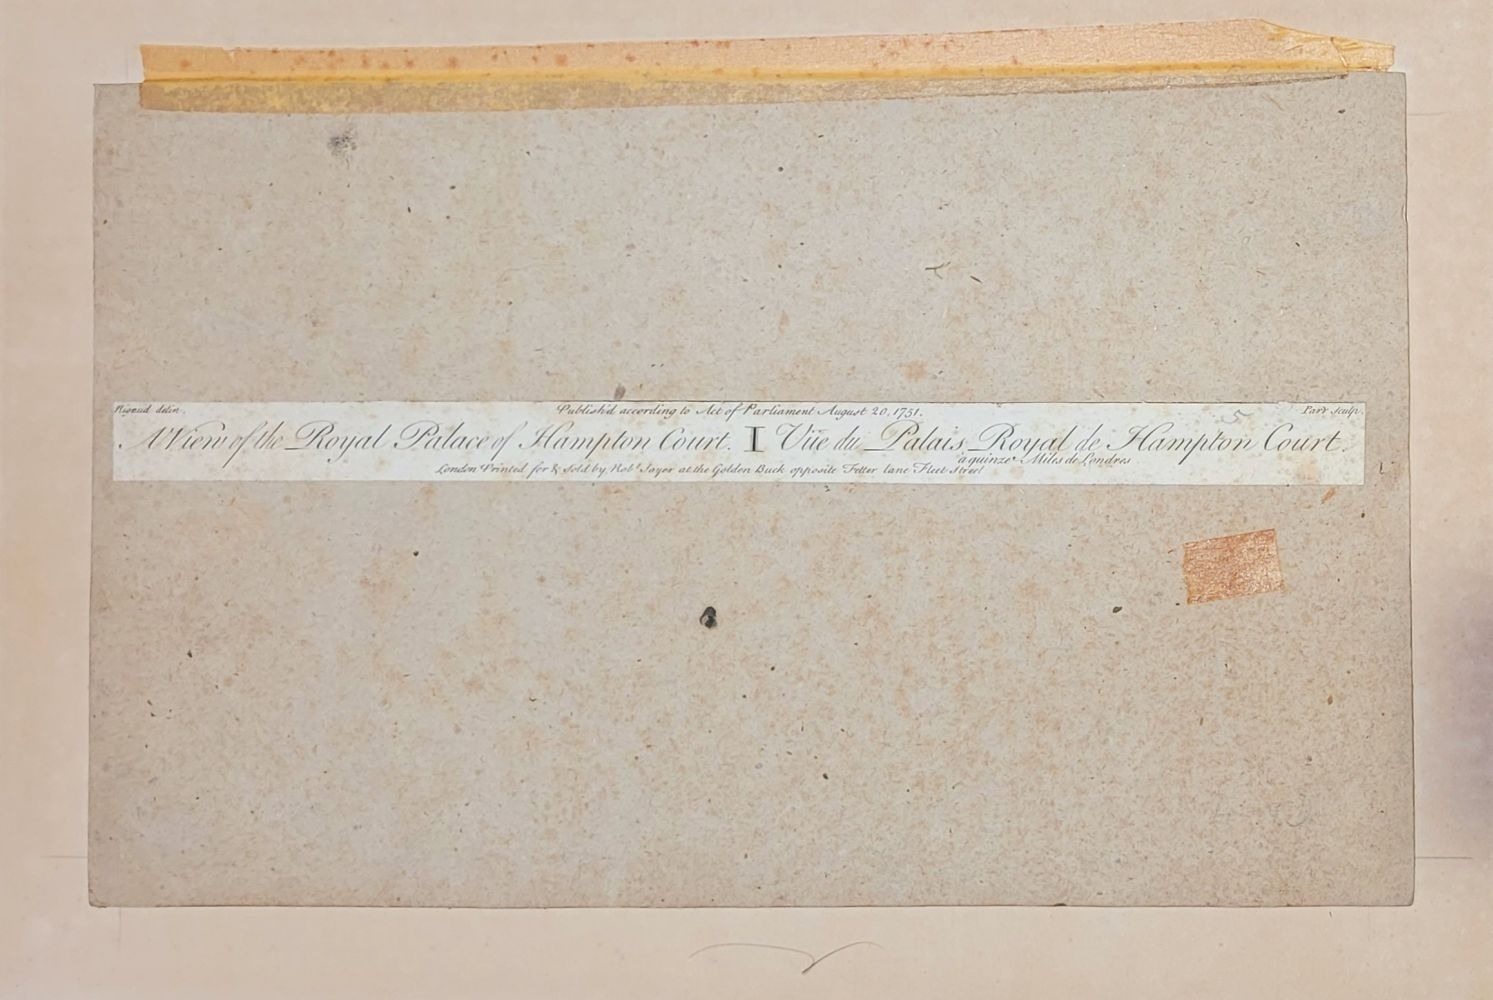 Rigaud delin. Publish'd according to Act of Parliament August 20, 1751. Parr Sculp.
A View of the Royal Palace of Hampton Court. I Vüe du Palais Royal de Hampton Court.
à quinze Miles de Londres
London Printed for & Sold by Robt Sayer at the Golden Buck opposite Fetter lane Fleet Street
5